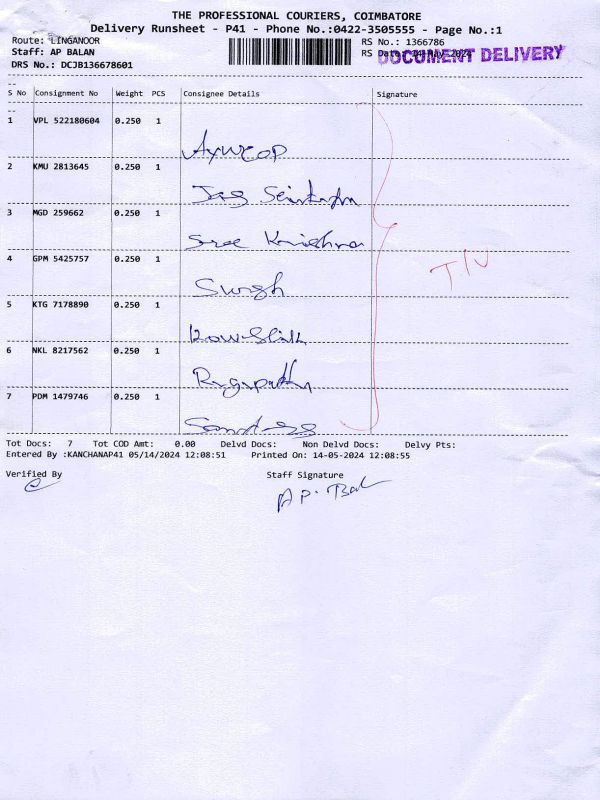 THE PROFESSIONAL COURIERS, COIMBATORE
Delivery Runsheet - P41 - Phone No.:0422-3505555 - Page No.:1
Route: LINGANOOR
Staff: AP BALAN
DRS No.: DCJB136678601
RS No.: 1366786
RS Date: 14-May-2024
DOCUMENT DELIVERY
S No Consignment No Weight PCS Consignee Details Signature
1 VPL 522180604 0.250 1
2 KMU 2813645 0.250 1
3 MGD 259662 0.250 1 Sree Krishna
4 GPM 5425757 0.250 1
5 KTG 7178890 0.250 1
6 NKL 8217562 0.250 1
7 PDM 1479746 0.250 1
Tot Docs: 7 Tot COD Amt: 0.00 Delvd Docs: Non Delvd Docs: Delvy Pts:
Entered By :KANCHANAP41 05/14/2024 12:08:51 Printed On: 14-05-2024 12:08:55
Verified By Staff Signature
AP. Bal